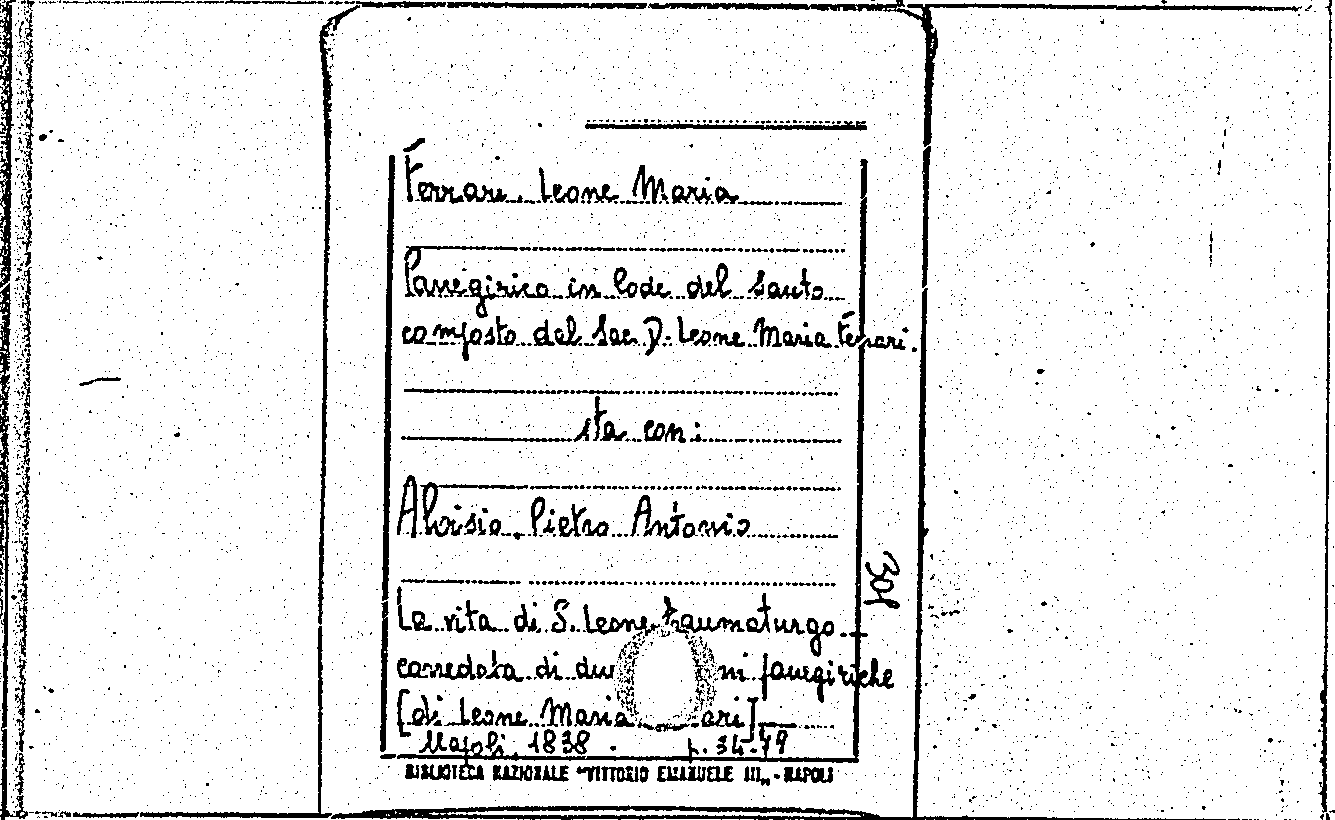 Ferrari, Leone Maria
Panegirico in lode del Santo
composto dal Sac. D. Leone Maria Ferrari.
sta con:
Aloisio, Pietro Antonio
La vita di S. Leone taumaturgo
corredata di du ni panegiriche
[di Leone Maria ari]
Napoli, 1838. p. 34-49
BIBLIOTECA NAZIONALE "VITTORIO EMANUELE III„ - NAPOLI